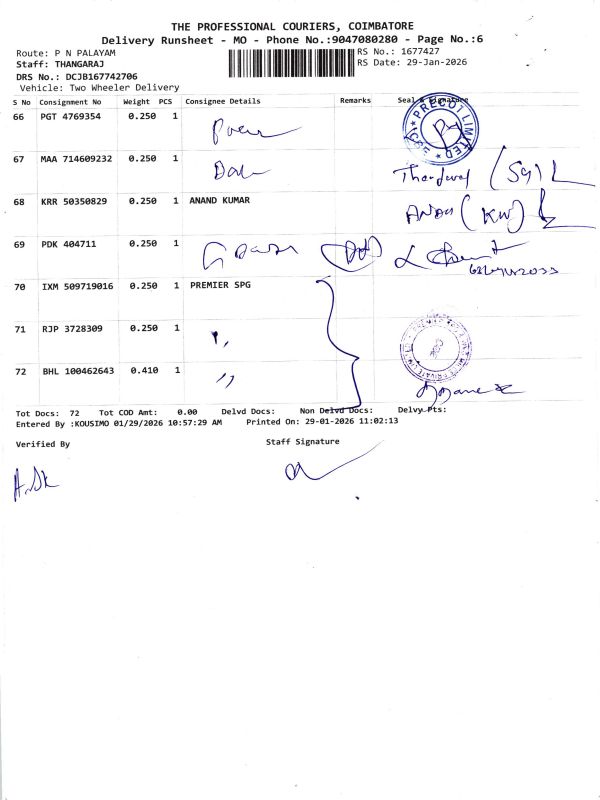 THE PROFESSIONAL COURIERS, COIMBATORE
Delivery Runsheet - MO - Phone No.:9047080280 - Page No.:6
Route: P N PALAYAM
RS No.: 1677427
Staff: THANGARAJ
RS Date: 29-Jan-2026
DRS No.: DCJB167742706
Vehicle: Two Wheeler Delivery
S No Consignment No Weight PCS Consignee Details Remarks Seal & Signature
66 PGT 4769354 0.250 1
PRECOT LIMITED
67 MAA 714609232 0.250 1
68 KRR 50350829 0.250 1 ANAND KUMAR
69 PDK 404711 0.250 1
70 IXM 509719016 0.250 1 PREMIER SPG
71 RJP 3728309 0.250 1 "
72 BHL 100462643 0.410 1 "
Tot Docs: 72 Tot COD Amt: 0.00 Delvd Docs: Non Delvd Docs: Delvy Pts:
Entered By :KOUSIMO 01/29/2026 10:57:29 AM Printed On: 29-01-2026 11:02:13
Verified By Staff Signature